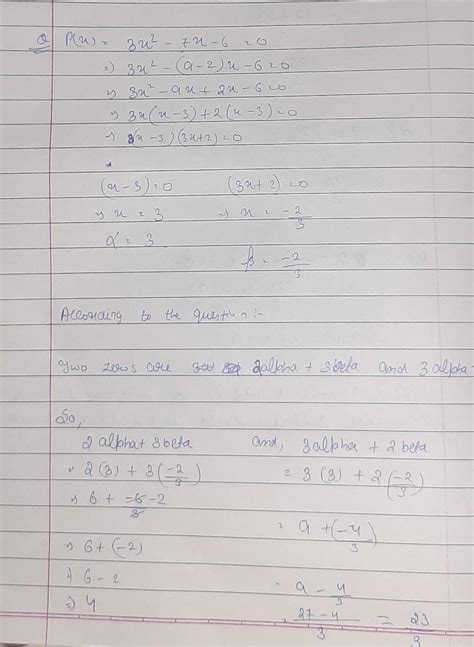 Q P(x) = 3x² - 7x - 6 = 0
=) 3x² - (9-2)x - 6 = 0
=) 3x² - 9x + 2x - 6 = 0
=) 3x(x-3) + 2(x-3) = 0
=) (x-3)(3x+2) = 0
(x-3) = 0 (3x+2) = 0
=) x = 3 =) x = -2/3
α = 3
β = -2/3
According to the question :-
Two zeros are 2alpha + 3beta and 3alpha
So,
2alpha + 3beta and, 3alpha + 2beta
= 2(3) + 3(-2/3) = 3(3) + 2(-2/3)
=) 6 + -2
= 9 + (-4/3)
=) 6 + (-2)
=) 6 - 2 = 9 - 4/3
=) 4 = 27-4/3 = 23/3